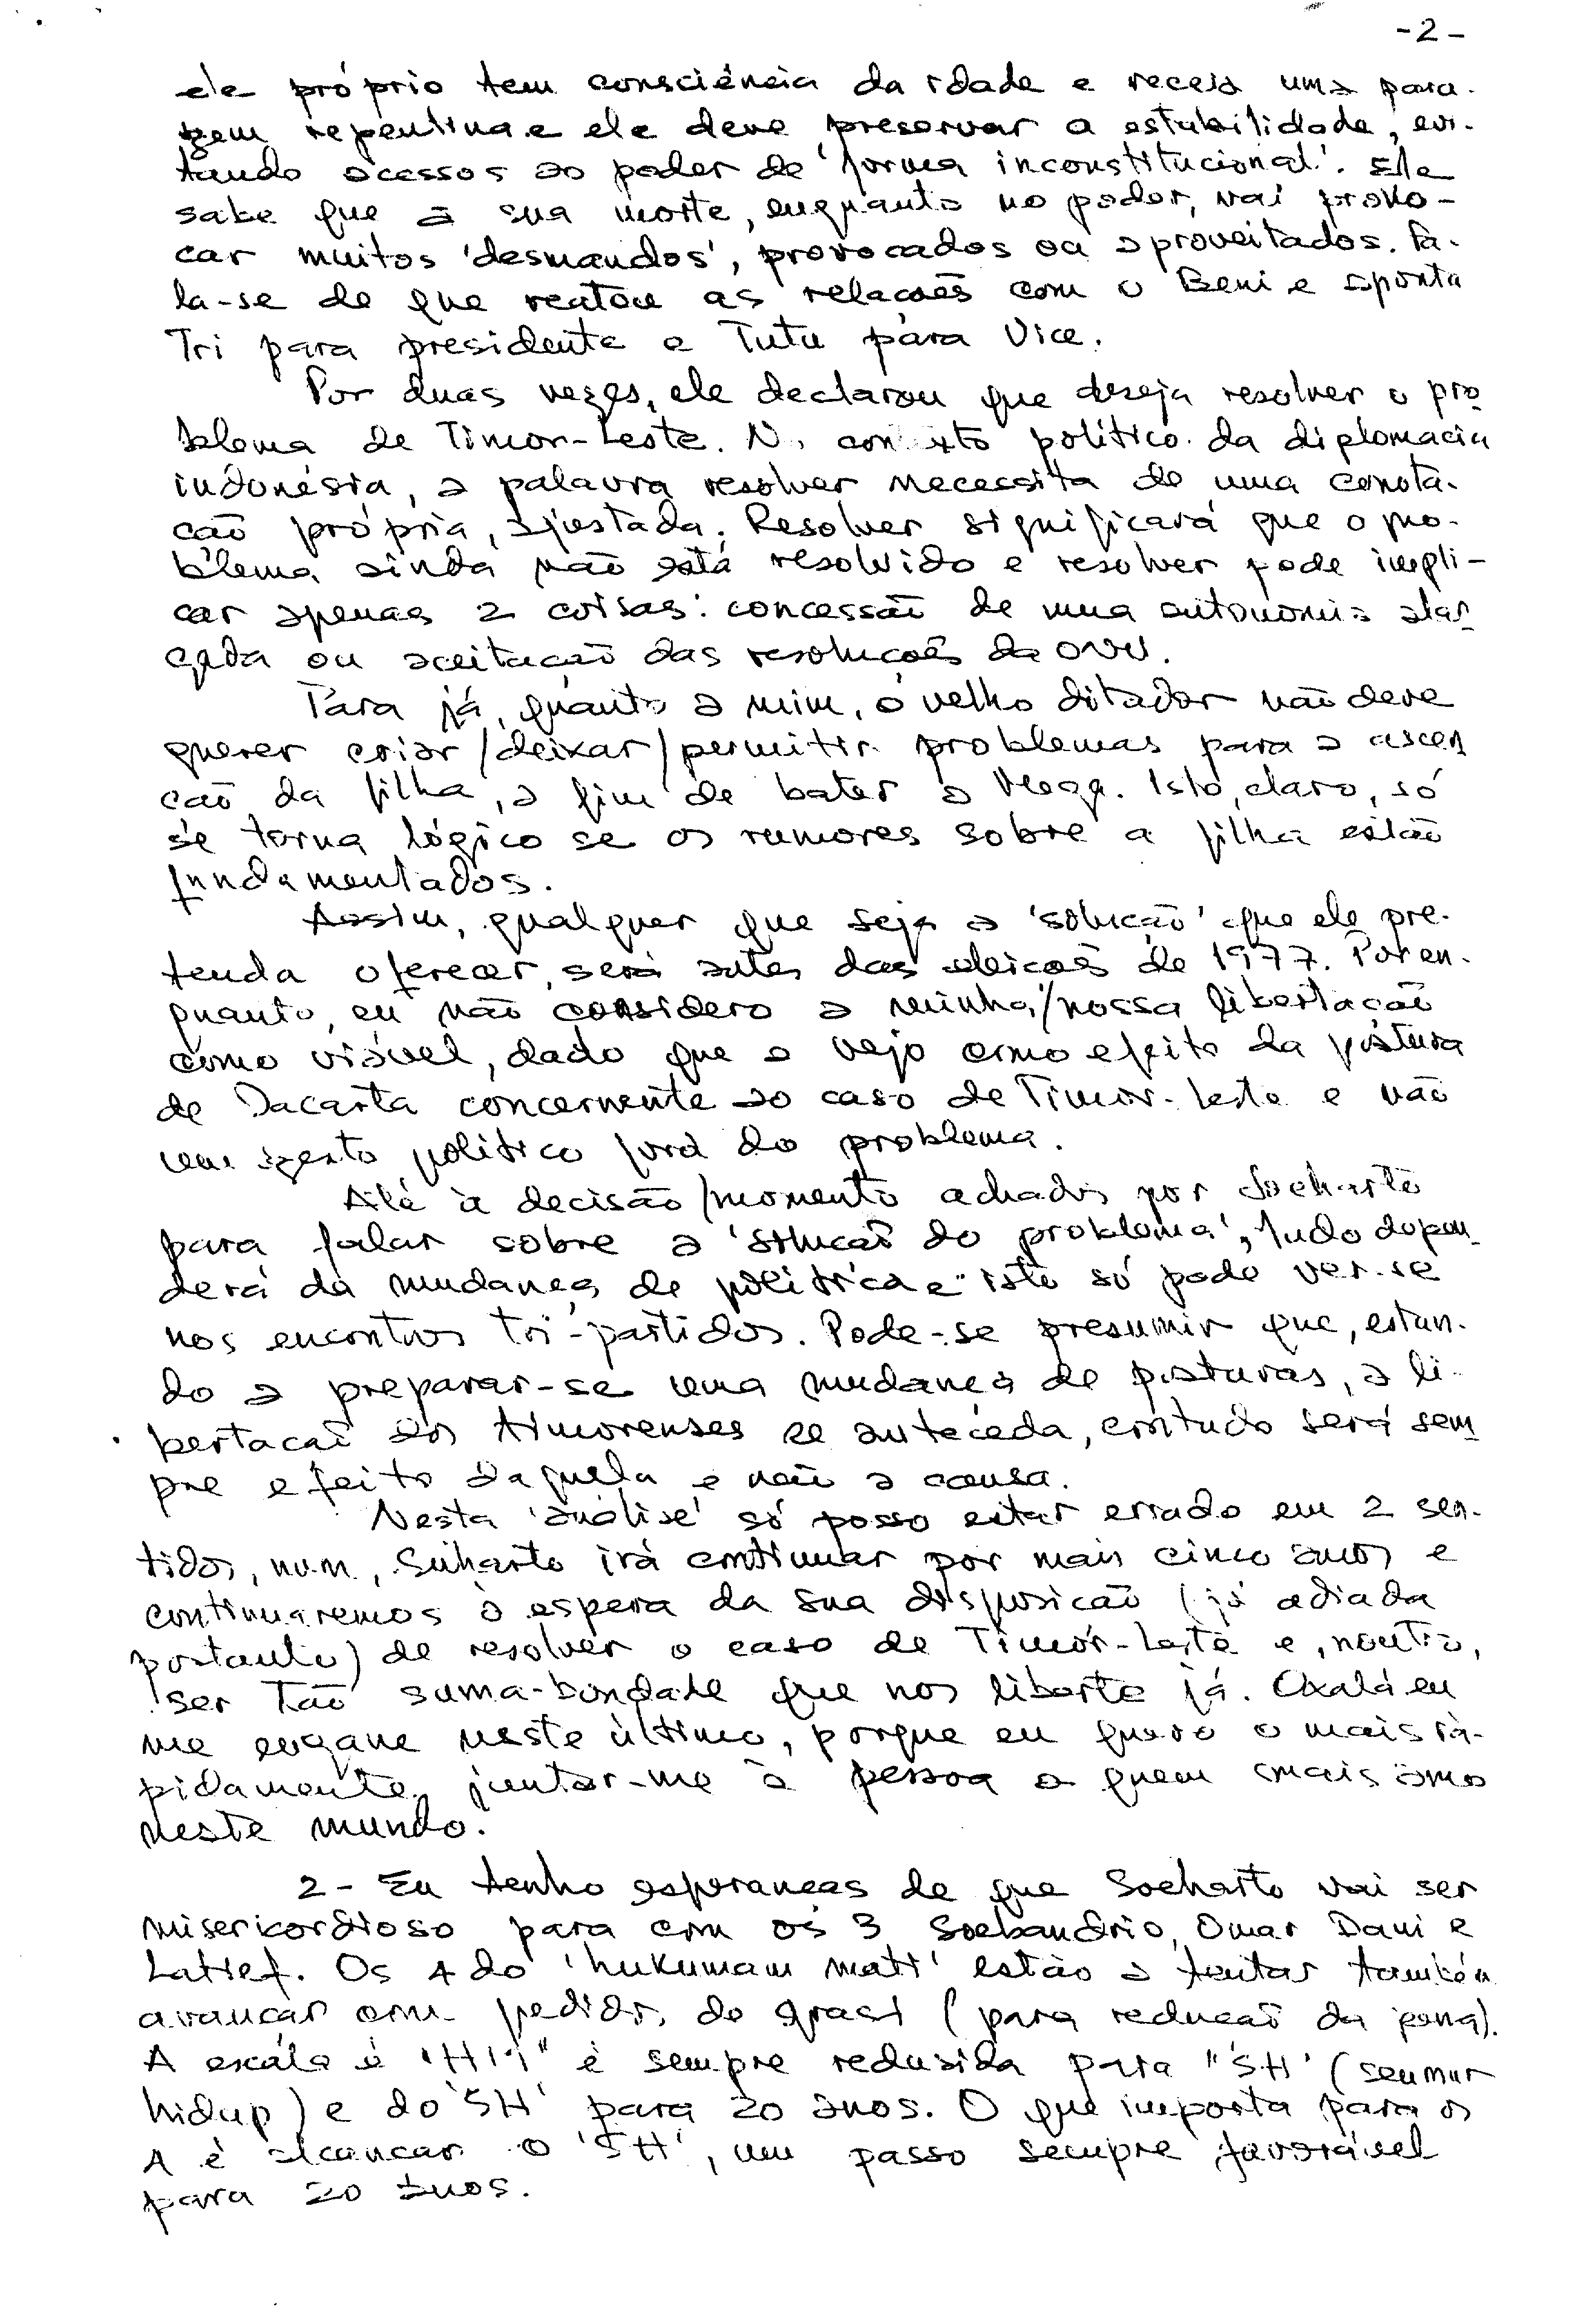 -2-
ele próprio tem consciência da idade e receia uma para-
gem repentina e ele deve preservar a estabilidade, evi-
tando acessos ao poder de 'forma inconstitucional'. Ele
sabe que a sua morte, enquanto no poder, vai provo-
car muitos 'desmandos', provocados ou aproveitados. Fa-
la-se de que reatou as relacões com o Beni e aponta
Tri para presidente e Tutu para Vice.
Por duas vezes, ele declarou que deseja resolver o pro
blema de Timor-Leste. No contexto político da diplomacia
indonésia, a palavra resolver necessita de uma conota-
cão própria, ajustada. Resolver significará que o pro-
blema ainda não está resolvido e resolver pode impli-
car apenas 2 coisas: concessão de uma autonomia alar
gada ou aceitacão das resolucões da ONU.
Para já, quanto a mim, o velho ditador não deve
querer criar/deixar/permitir problemas para a ascen
cão da filha, a fim de bater a Mega. Isto, claro, só
se torna lógico se os rumores sobre a filha estão
fundamentados.
Assim, qualquer que seja a 'solucão' que ele pre-
tenda oferecer, será antes das eleicões de 1977. Por en-
quanto, eu não considero a minha/nossa libertacão
como viável, dado que a vejo como efeito da postura
de Jacarta concernente ao caso de Timor-Leste e não
um gesto político fora do problema.
Até à decisão/momento achados por Soeharto
para falar sobre a 'solucão do problema', tudo depen
derá da mudanca de política e isto só pode ver-se
nos encontros tri-partidos. Pode-se presumir que, estan-
do a preparar-se uma mudanca de posturas, a li-
bertacão dos timorenses se anteceda, contudo será sem
pre efeito daquela e não a causa.
Nesta 'análise' só posso estar errado em 2 sen-
tidos, num, Suharto irá continuar por mais cinco anos e
continuaremos à espera da sua disposicão (já adiada
portanto) de resolver o caso de Timor-Leste e, noutro,
ser tão suma-bondade que nos liberte já. Oxalá eu
me engane neste último, porque eu quero o mais rà-
pidamente juntar-me à pessoa a quem mais amo
neste mundo.
2- Eu tenho esperancas de que Soeharto vai ser
misericordioso para com os 3 Soebandrio, Omar Dani e
Latief. Os 4 do 'hukumam mati' estão a tentar também
avancar com pedidos de grasi (para reducão da pena).
A escala é 'HM' é sempre reduzida para "SH' (seumur
hidup) e do 'SH' para 20 anos. O que importa para os
4 é alcancar o 'SH', um passo sempre favorável
para 20 anos.